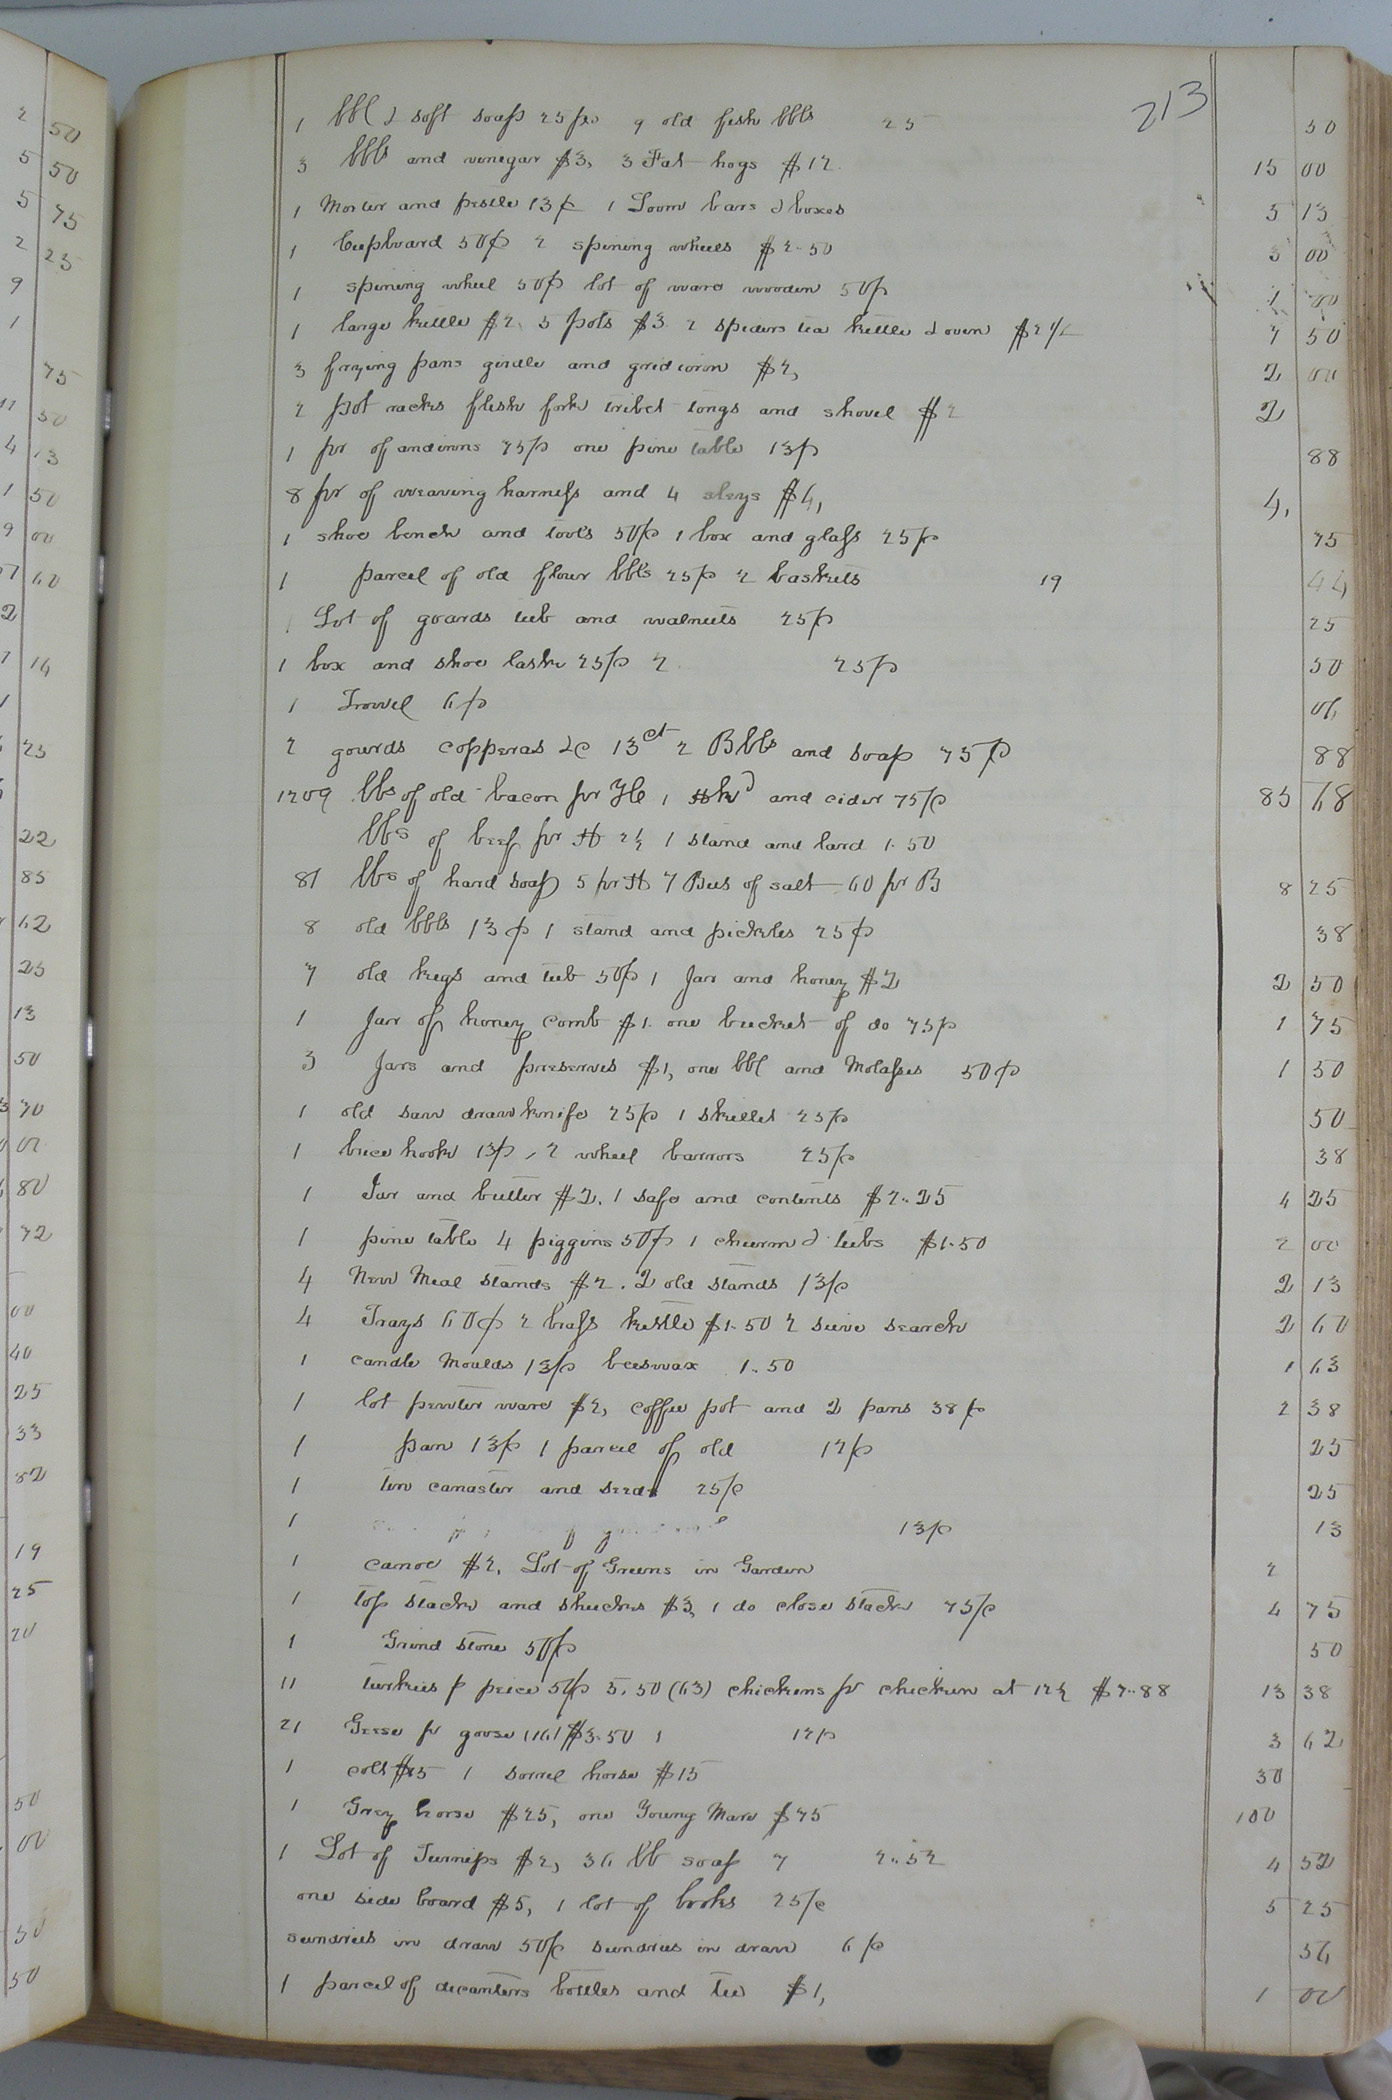 213
1 bbl & soft soap 25 pr 9 old fish bbls 25 50
3 bbls and vinegar $3, 3 Fat hogs $12 15 00
1 Morter and pestle 13p 1 Loom bars & boxes 5 13
1 Cupboard 50p 2 spining wheels $2.50 3 00
1 spining wheel 50p lot of ware wooden 50p 1 00
1 large kettle $2, 5 pots $3 2 spiders tea kettle & oven $2½ 7 50
3 frying pans girdle and gridiron $2, 2 00
2 pot racks flesh fork tribet tongs and shovel $2 2
1 pr of andirons 75p one pine table 13p 88
8 pr of weaving harness and 4 sleys $4, 4,
1 shoe bench and tools 50p 1 box and glass 25p 75
1 parcel of old flour bbls 25p 2 baskets 19 44
1 Lot of goards tub and walnuts 25p 25
1 box and shoe lasts 25p 2 25p 50
1 Trowel 6p 06
2 gourds copperas &c 13ct 2 Bbls and soap 75p 88
1209 lbs of old bacon pr 1 Hhd and cider 75p 85 68
lbs of beef pr lb 2½ 1 stand and lard 1.50
81 lbs of hard soap 5 pr lb 7 Bus of salt 60 pr B 8 25
8 old bbls 13p 1 stand and pickles 25p 38
7 old kegs and tub 50p 1 Jar and honey $2 2 50
1 Jar of honey comb $1. one bucket of do 75p 1 75
3 Jars and preserves $1, one bbl and Molasses 50p 1 50
1 old saw drawknife 25p 1 skillet 25p 50
1 hook 13p, 2 wheel barrors 25p 38
1 Jar and butter $2, 1 safe and contents $2.25 4 25
1 pine table 4 piggins 50p 1 churm & tubs $1.50 2 00
4 New Meal stands $2. 2 old stands 13p 2 13
4 Trays 60p 2 brass kettle $1.50 2 seive search 2 60
1 candle Moulds 13p beeswax 1.50 1 63
1 lot pewter ware $2, coffee pot and 2 pans 38p 2 38
1 pan 13p 1 parcel of old 12p 25
1 tin canaster and seeds 25p 25
1 13p 13
1 canoe $2, Lot of Greens in Garden 2
1 top stack and shucks $3, 1 do close stack 75p 4 75
1 Grind stone 50p 50
11 turkies p peice 50p 5.50 (63) chickens pr chicken at 12½ $7.88 13 38
21 Geese pr goose (16) $3.50 1 12p 3 62
1 colt $15 1 sorrel horse $15 30
1 Grey horse $25, one Young Mare $75 100
1 Lot of Turnips $2, 36 lb soap 7 2.52 4 52
one side board $5, 1 lot of books 25p 5 25
sundries in draw 50p sundries in draw 6p 56
1 parcel of decanters bottles and tee $1, 1 00